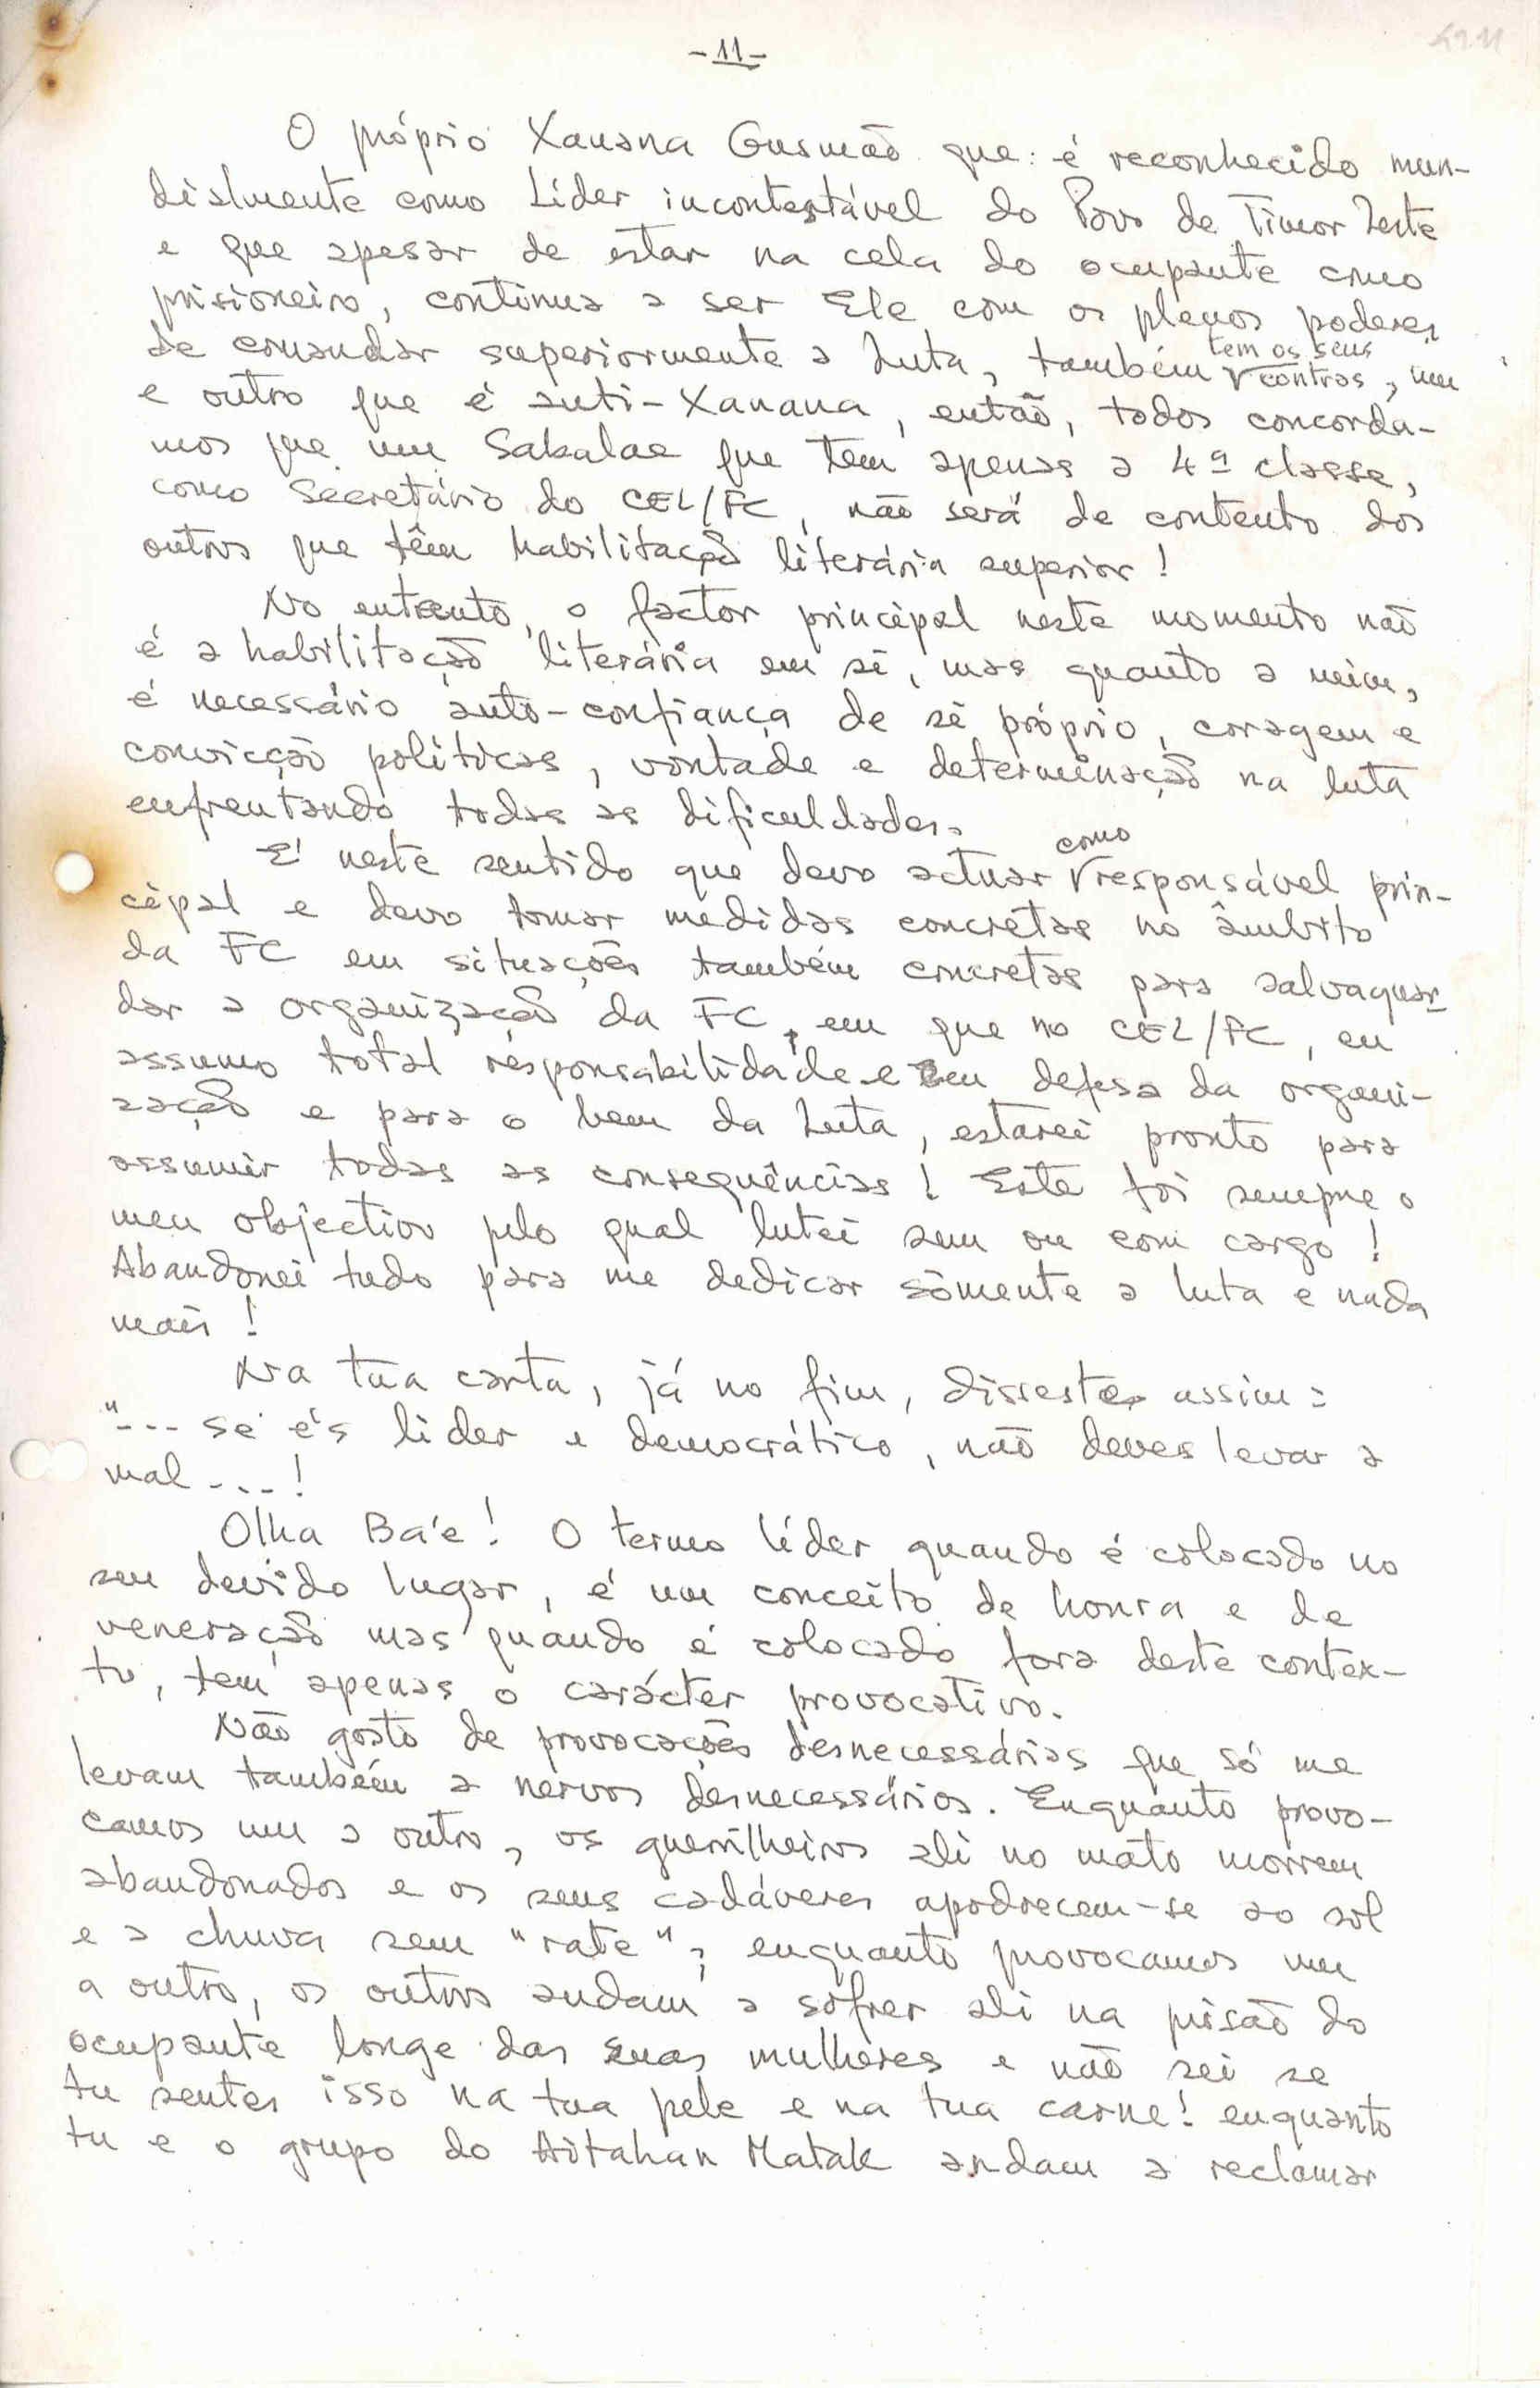 -11-
O próprio Xanana Gusmão que é reconhecido mun-
dialmente como Líder incontestável do Povo de Timor Leste
e que apesar de estar na cela do ocupante como
prisioneiro, continua a ser Ele com os plenos poderes
de comandar superiormente a Luta, também tem os seus contras, um
e outro que é anti-Xanana, então, todos concorda-
mos que um Sabalae que tem apenas a 4ª classe,
como Secretário do CEL/FC, não será de contento dos
outros que têm habilitação literária superior!
No entanto, o factor principal neste momento não
é a habilitação literária em si, mas quanto a mim,
é necessário auto-confiança de si próprio, coragem e
convicção políticas, vontade e determinação na luta
enfrentando todas as dificuldades.
É neste sentido que devo actuar como responsável prin-
cipal e devo tomar medidas concretas no âmbito
da FC em situações também concretas para salvaguar-
dar a organização da FC, em que no CEL/FC, eu
assumo total responsabilidade e em defesa da organi-
zação e para o bem da Luta, estarei pronto para
assumir todas as consequências! Este foi sempre o
meu objectivo pelo qual lutei sem ou com cargo!
Abandonei tudo para me dedicar sòmente a luta e nada
mais!
Na tua carta, já no fim, disseste assim:
"... se és líder e democrático, não deves levar a
mal...!
Olha Ba'e! O termo líder quando é colocado no
seu devido lugar, é um conceito de honra e de
veneração mas quando é colocado fora deste contex-
to, tem apenas o carácter provocativo.
Não gosto de provocações desnecessárias que só me
levam também a nervos desnecessários. Enquanto provo-
camos um a outro, os guerrilheiros ali no mato morrem
abandonados e os seus cadáveres apodrecem-se ao sol
e a chuva sem "rate"; enquanto provocamos um
a outro, os outros andam a sofrer ali na prisão do
ocupante longe das suas mulheres e não sei se
tu sentes isso na tua pele e na tua carne! enquanto
tu e o grupo do Aitahan Matak andam a reclamar